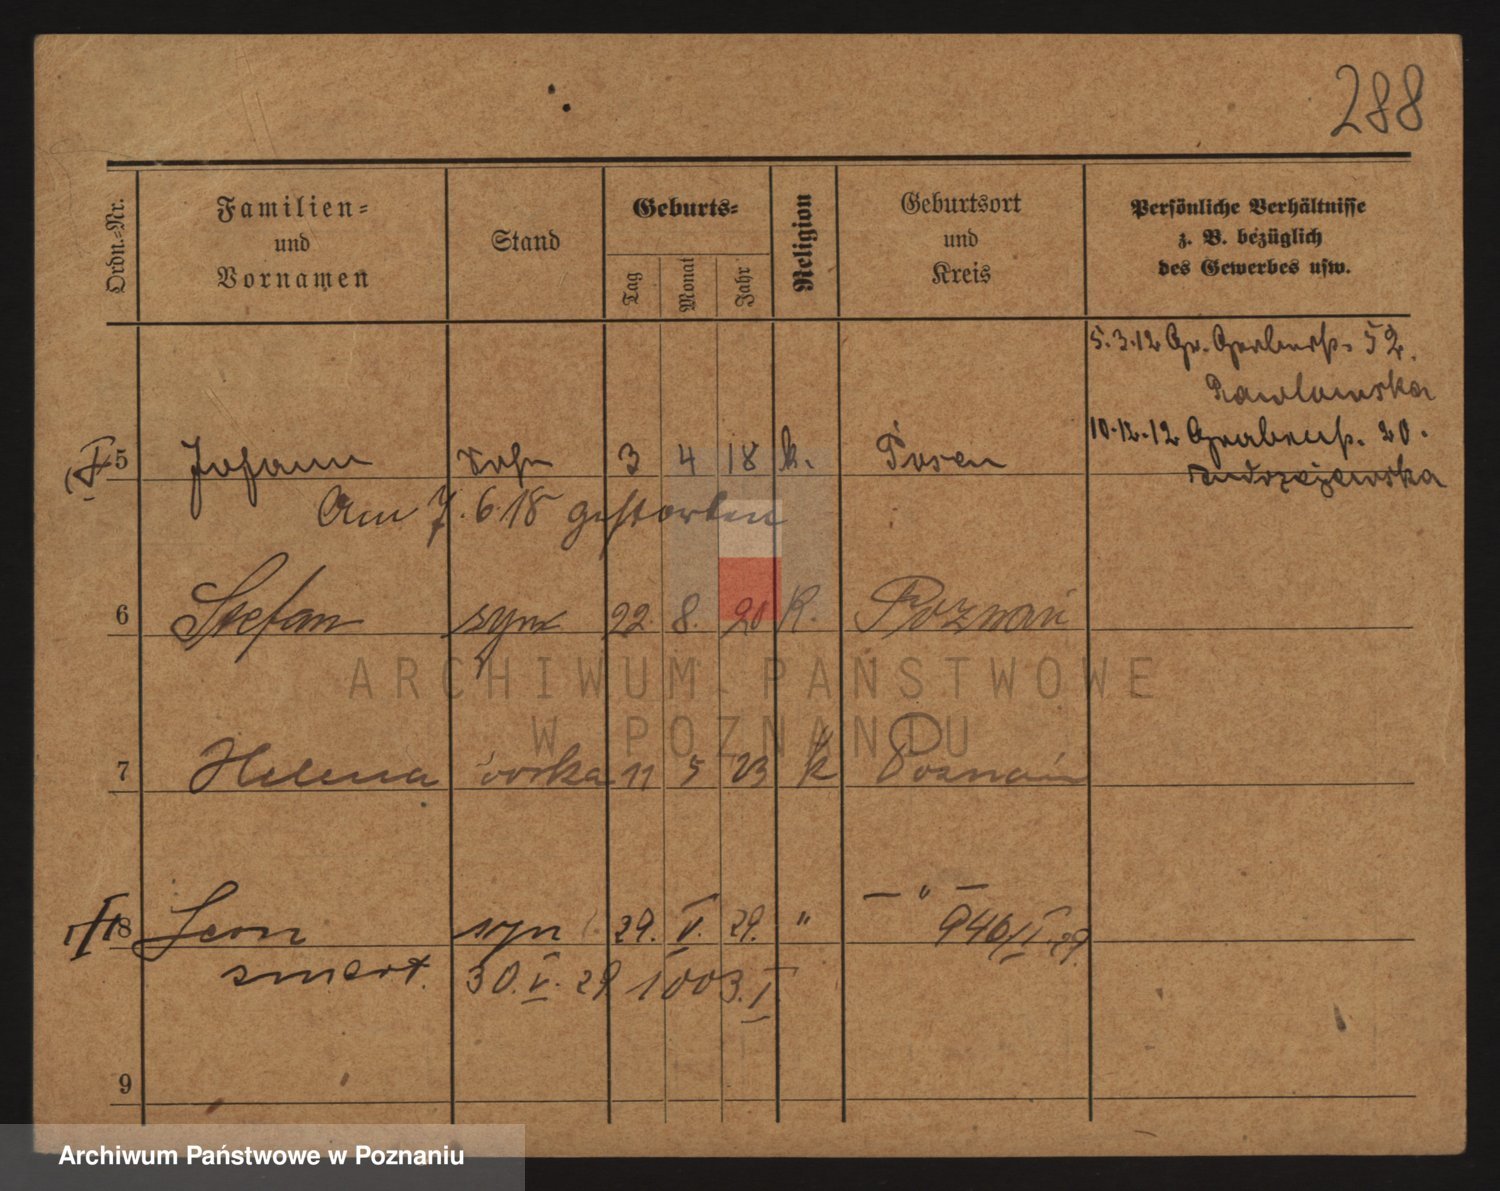 288
Ordn.-Nr.
Familien- und Vornamen
Stand
Geburts-
Tag
Monat
Jahr
Religion
Geburtsort und Kreis
Persönliche Verhältnisse
z. B. bezüglich
des Gewerbes usw.
5.3.12 Gr. Gerberstr. 52.
Pawlowska
10.12.12 Grabenstr. 20.
5 Johann Sohn 3 4 18 k. Posen
Andrzejewska
Am 7.6.18 gestorben
6 Stefan syn 22. 8. 20 K. Poznań
ARCHIWUM PAŃSTWOWE
W POZNANIU
7 Helena córka 11 5 23 k Poznań
— " —
8 Leon syn 29. V. 29. " 946/I.29.
zmarł. 30.V.29 1003.I.
9
Archiwum Państwowe w Poznaniu